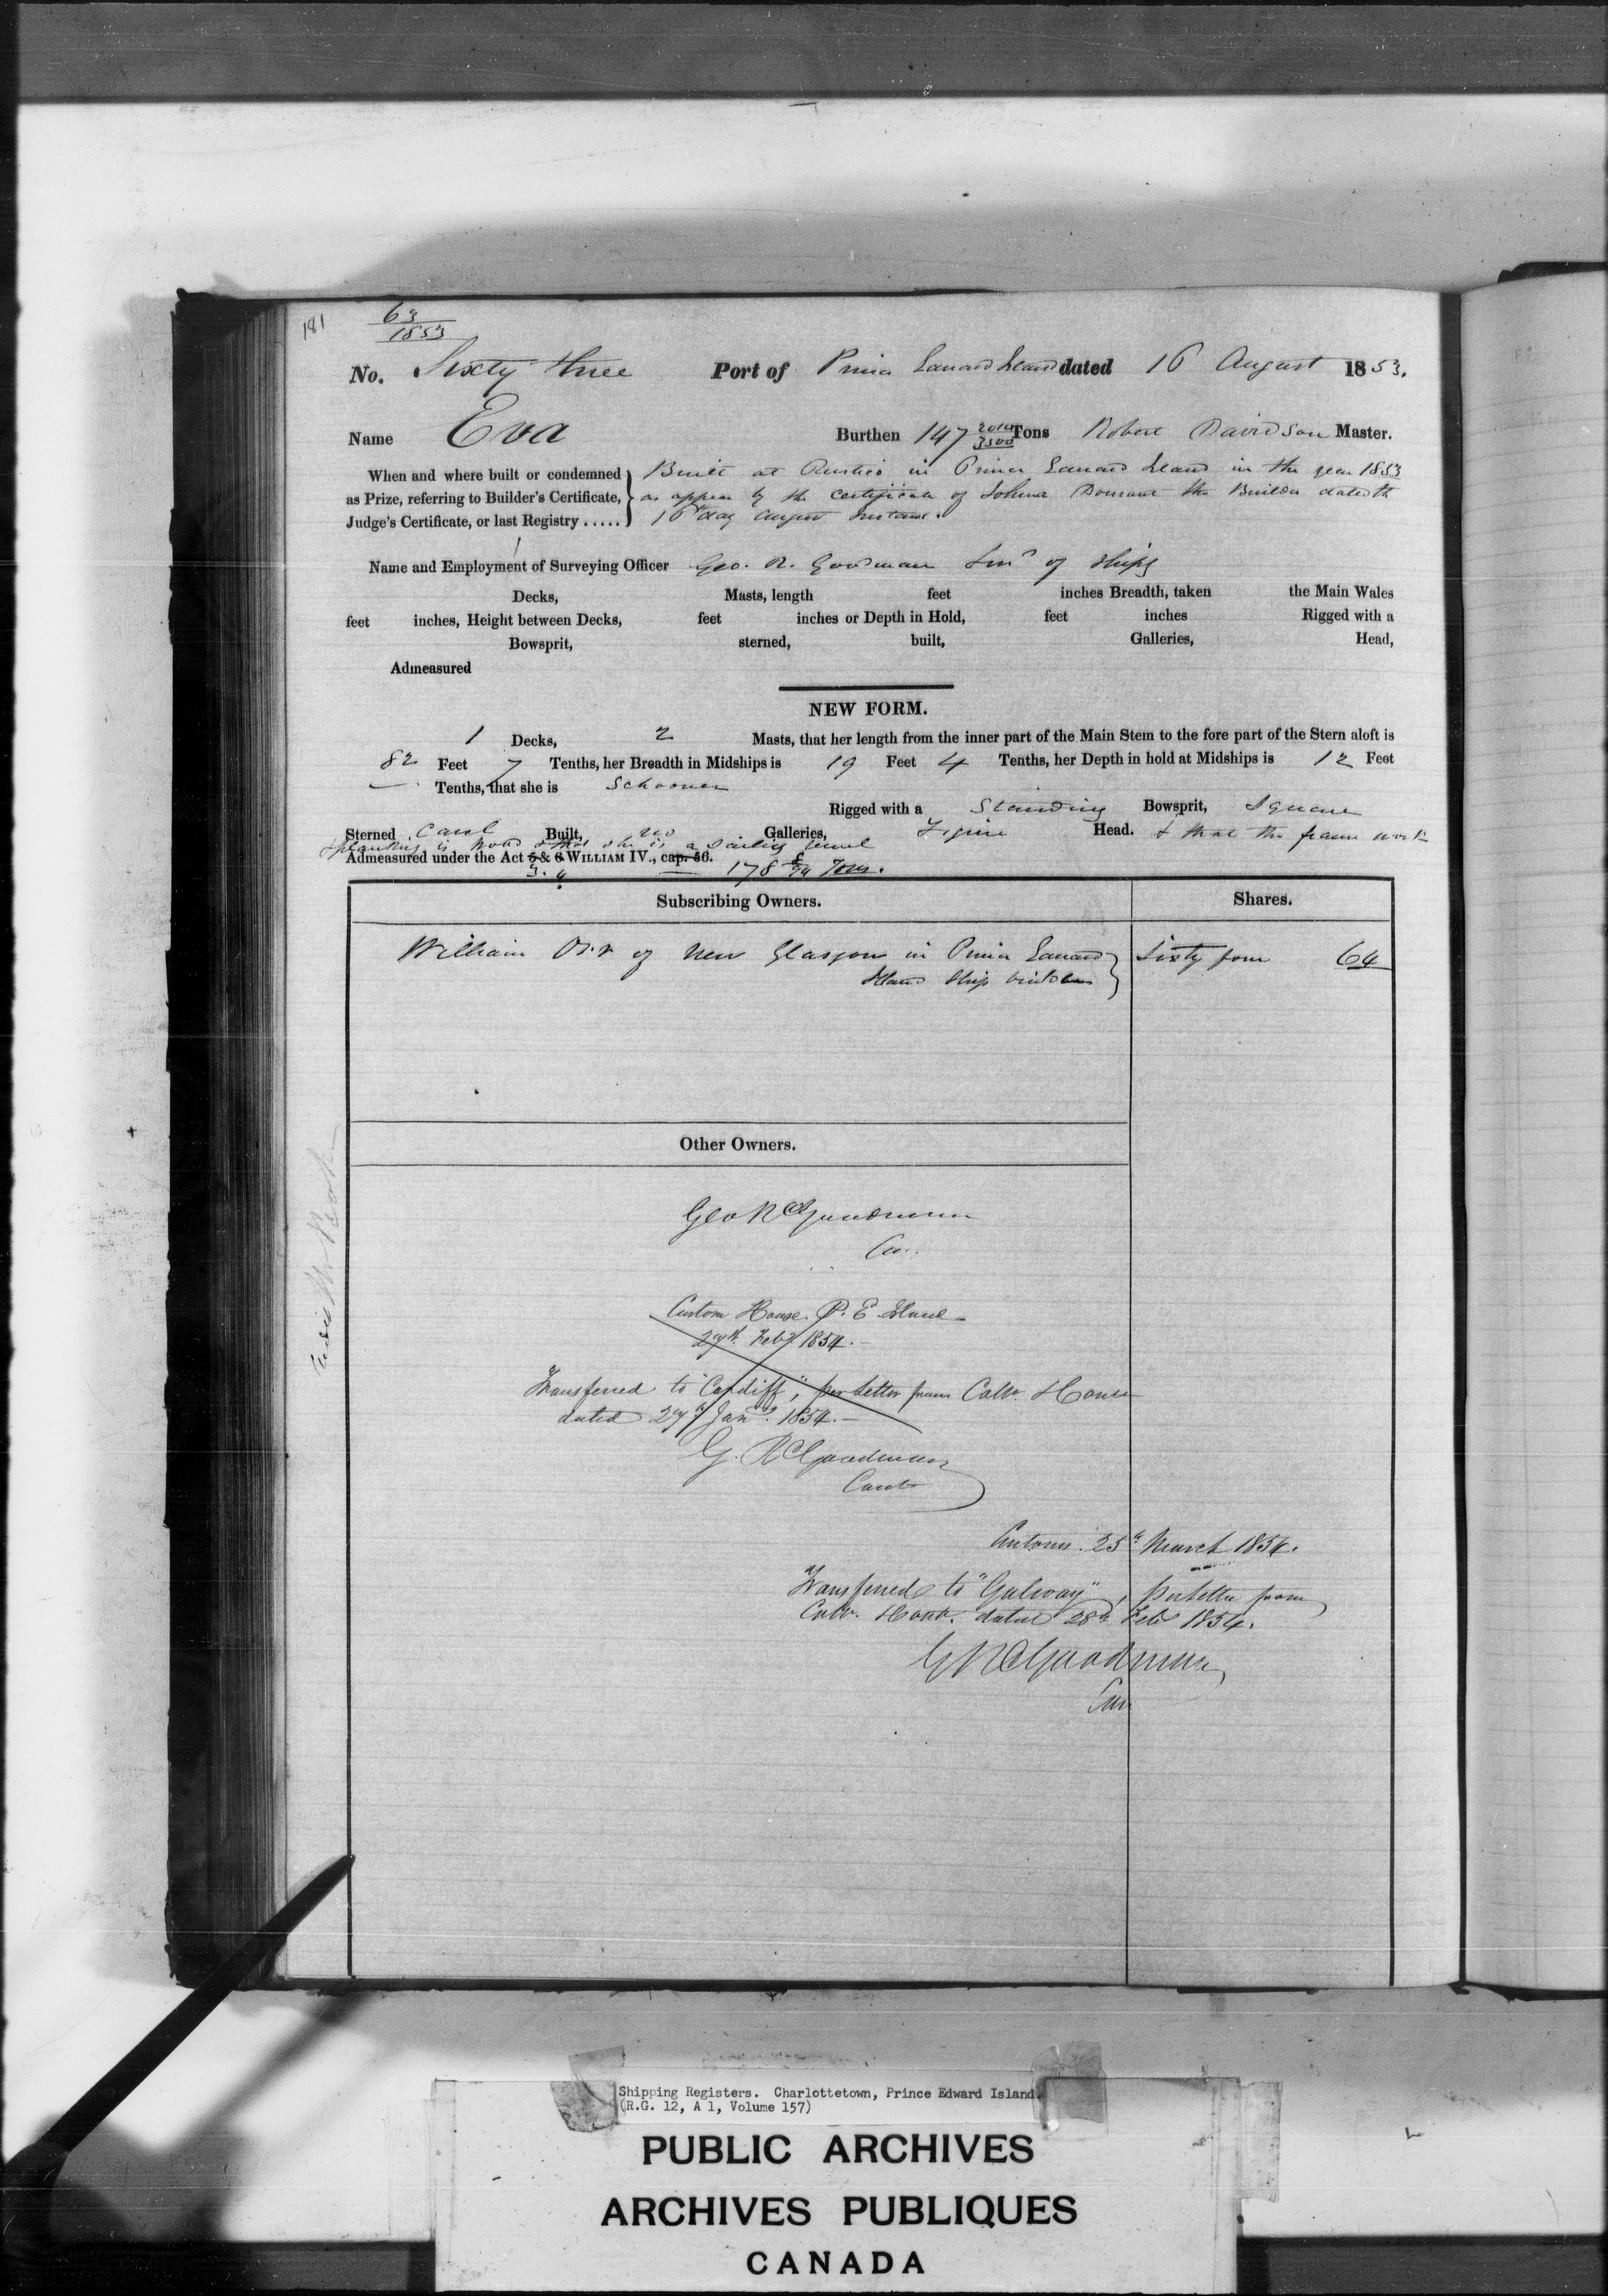 181
63
1853
No. Sixty three Port of Prince Edward Island dated 16 August 1853.
Name Eva Burthen 147 2014/3500 Tons Robert Davidson Master.
When and where built or condemned as Prize, referring to Builder's Certificate, Judge's Certificate, or last Registry .....
Built at Rustico in Prince Edward Island in the year 1853
as appears by the certificate of the Builder dated th
16th day August Instant.
Name and Employment of Surveying Officer Geo. R. Goodman of Ships
Decks, Masts, length feet inches Breadth, taken the Main Wales
feet inches, Height between Decks, feet inches or Depth in Hold, feet inches Rigged with a
Bowsprit, sterned, built, Galleries, Head,
Admeasured
NEW FORM.
1 Decks, 2 Masts, that her length from the inner part of the Main Stem to the fore part of the Stern aloft is
82 Feet 7 Tenths, her Breadth in Midships is 19 Feet 4 Tenths, her Depth in hold at Midships is 12 Feet
— Tenths, that she is Schooner
Rigged with a Standing Bowsprit, Square
Sterned Carvel Built, no Galleries, Figure Head. & that the frame work
& planking is wood & that she is a sailing vessel
Admeasured under the Act 5 & 6 WILLIAM IV., cap. 56.
3. 4 — 178 Tons.
Subscribing Owners. Shares.
William Orr of New Glasgow in Prince Edward Sixty four 64
Island Ship builder
Other Owners.
Geo R Goodman
Custom House P. E. Island
27th Feby 1854.
Transferred to "Cardiff", per letter from Custm House
dated 27th Jany. 1854.
G. R Goodman
Cont
Customs 25th March 1854.
Transferred to "Galway", per letter from
Custm. House. dated 28th Feb 1854.
G R Goodman
Shipping Registers. Charlottetown, Prince Edward Island
(R.G. 12, A 1, Volume 157)
PUBLIC ARCHIVES
ARCHIVES PUBLIQUES
CANADA